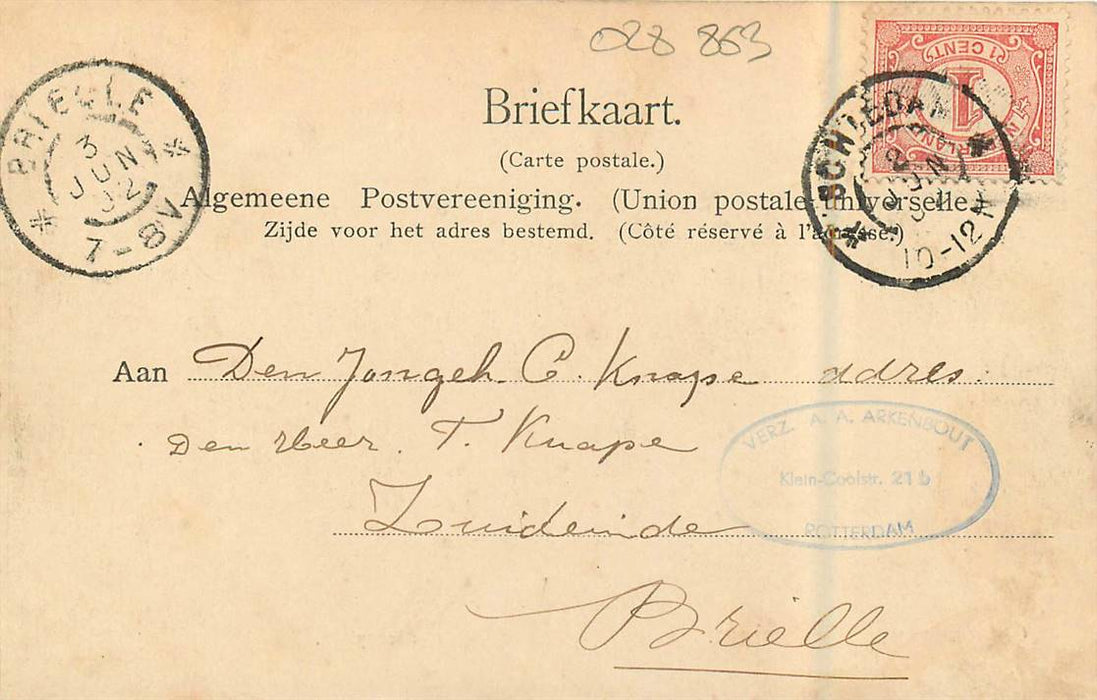 028 863
Briefkaart.
(Carte postale.)
Algemeene Postvereeniging. (Union postale universelle.)
Zijde voor het adres bestemd. (Côté réservé à l'adresse.)
BRIELLE
3
JUN
02
7-8V
SCHIEDAM
2
JUN
10-12N
1 CENT
1
NEDERLAND
Aan Den Jongeh. C. Knape adres:
Den Heer. T. Knape
Zuideinde
Brielle
VERZ. A. A. ARKENBOUT
Klein-Coolstr. 21 b
ROTTERDAM